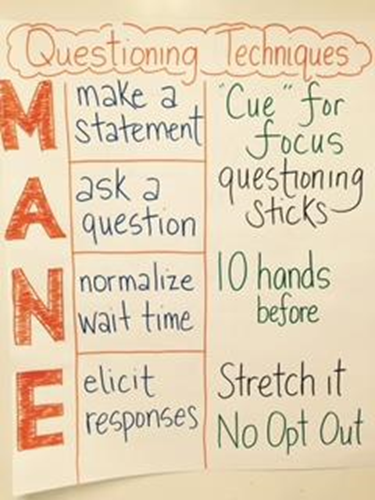 Questioning Techniques
M
make a
statement
"Cue" for
focus
A
ask a
question
questioning
sticks
N
normalize
wait time
10 hands
before
E
elicit
responses
Stretch it
No Opt Out